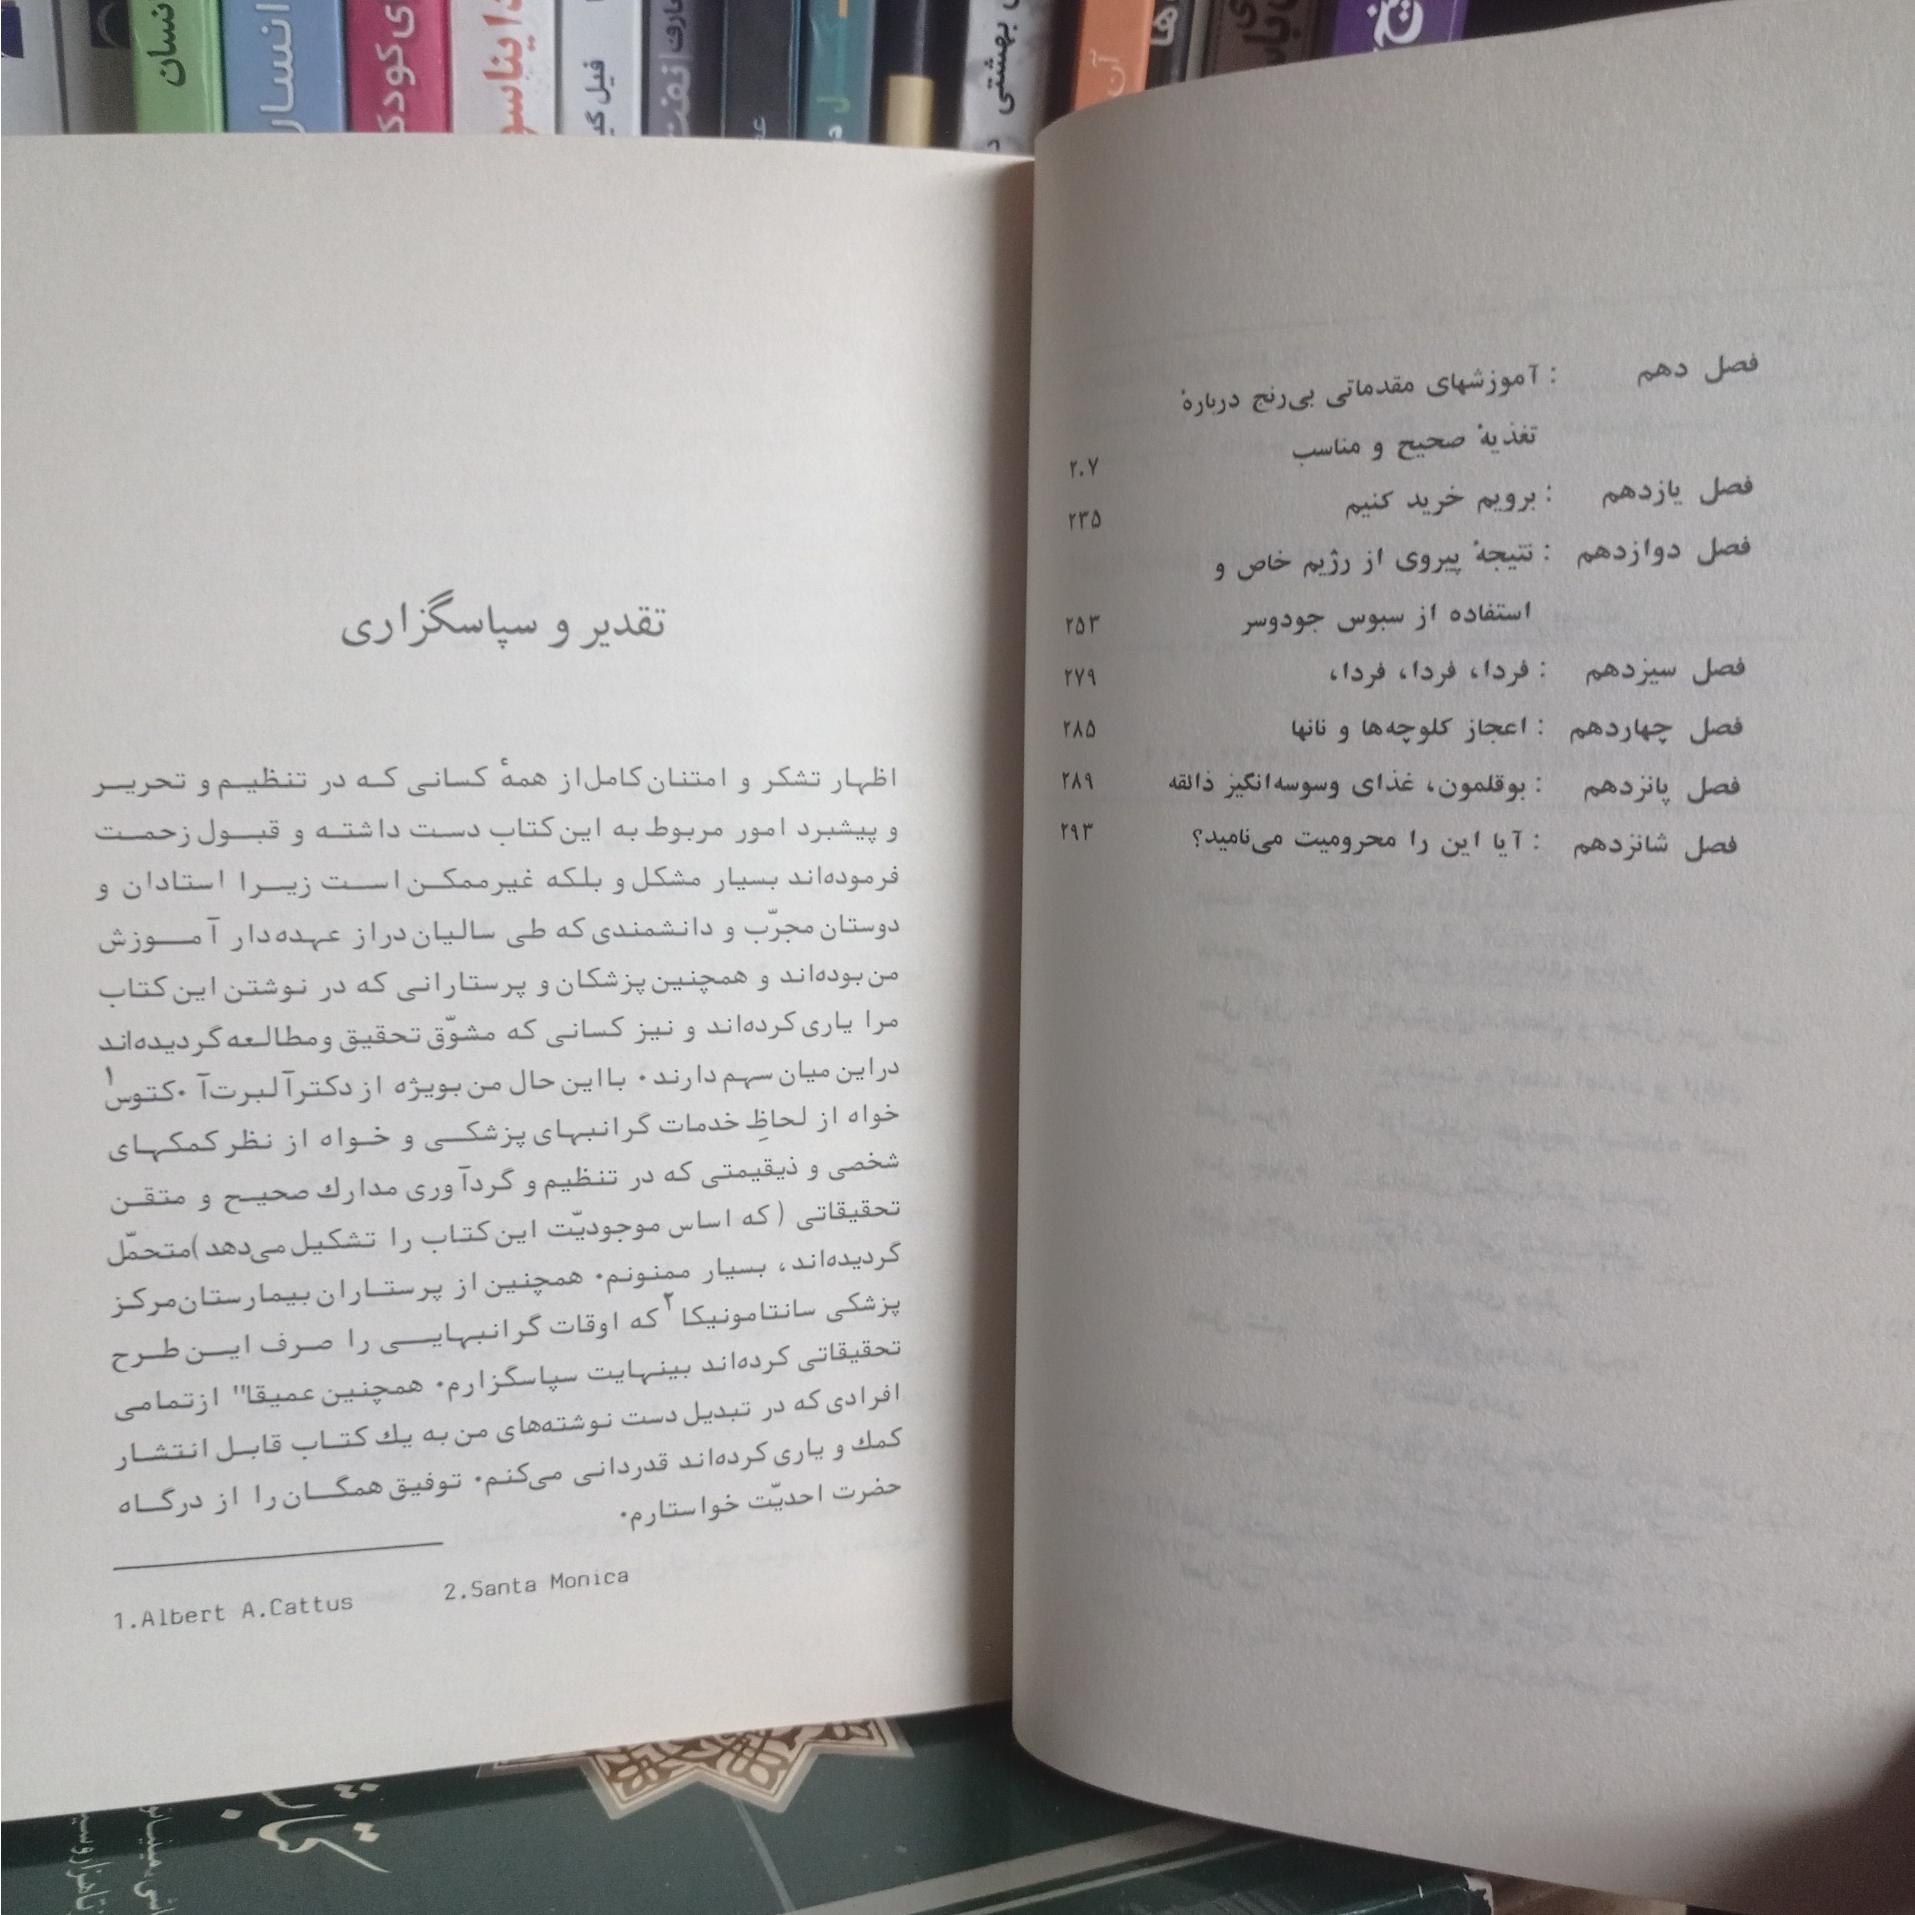 انسان
انسار
ی کودک
فیل گی
بهشتی
آن
ها
فصل دهم : آموزشهای مقدماتی بی‌رنج دربارهٔ
تغذیهٔ صحیح و مناسب ۲۰۷
فصل یازدهم : برویم خرید کنیم ۲۳۵
فصل دوازدهم : نتیجهٔ پیروی از رژیم خاص و
استفاده از سبوس جودوسر ۲۵۳
فصل سیزدهم : فردا، فردا، فردا، ۲۷۹
فصل چهاردهم : اعجاز کلوچه‌ها و نانها ۲۸۵
فصل پانزدهم : بوقلمون، غذای وسوسه‌انگیز ذائقه ۲۸۹
فصل شانزدهم : آیا این را محرومیت می‌نامید؟ ۲۹۳
تقدیر و سپاسگزاری
اظهار تشکر و امتنان کامل از همهٔ کسانی که در تنظیم و تحریر
و پیشبرد امور مربوط به این کتاب دست داشته و قبول زحمت
فرموده‌اند بسیار مشکل و بلکه غیرممکن است زیرا استادان و
دوستان مجرّب و دانشمندی که طی سالیان دراز عهده‌دار آموزش
من بوده‌اند و همچنین پزشکان و پرستارانی که در نوشتن این کتاب
مرا یاری کرده‌اند و نیز کسانی که مشوّق تحقیق و مطالعه گردیده‌اند
در این میان سهم دارند. با این حال من بویژه از دکتر آلبرت آ. کتوس۱
خواه از لحاظِ خدمات گرانبهای پزشکی و خواه از نظر کمکهای
شخصی و ذیقیمتی که در تنظیم و گردآوری مدارك صحیح و متقن
تحقیقاتی (که اساس موجودیّت این کتاب را تشکیل می‌دهد) متحمّل
گردیده‌اند، بسیار ممنونم. همچنین از پرستاران بیمارستان مرکز
پزشکی سانتامونیکا۲ که اوقات گرانبهایی را صرف این طرح
تحقیقاتی کرده‌اند بینهایت سپاسگزارم. همچنین عمیقا" از تمامی
افرادی که در تبدیل دست نوشته‌های من به یك کتاب قابل انتشار
کمك و یاری کرده‌اند قدردانی می‌کنم. توفیق همگان را از درگاه
حضرت احدیّت خواستارم.
1.Albert A.Cattus 2.Santa Monica